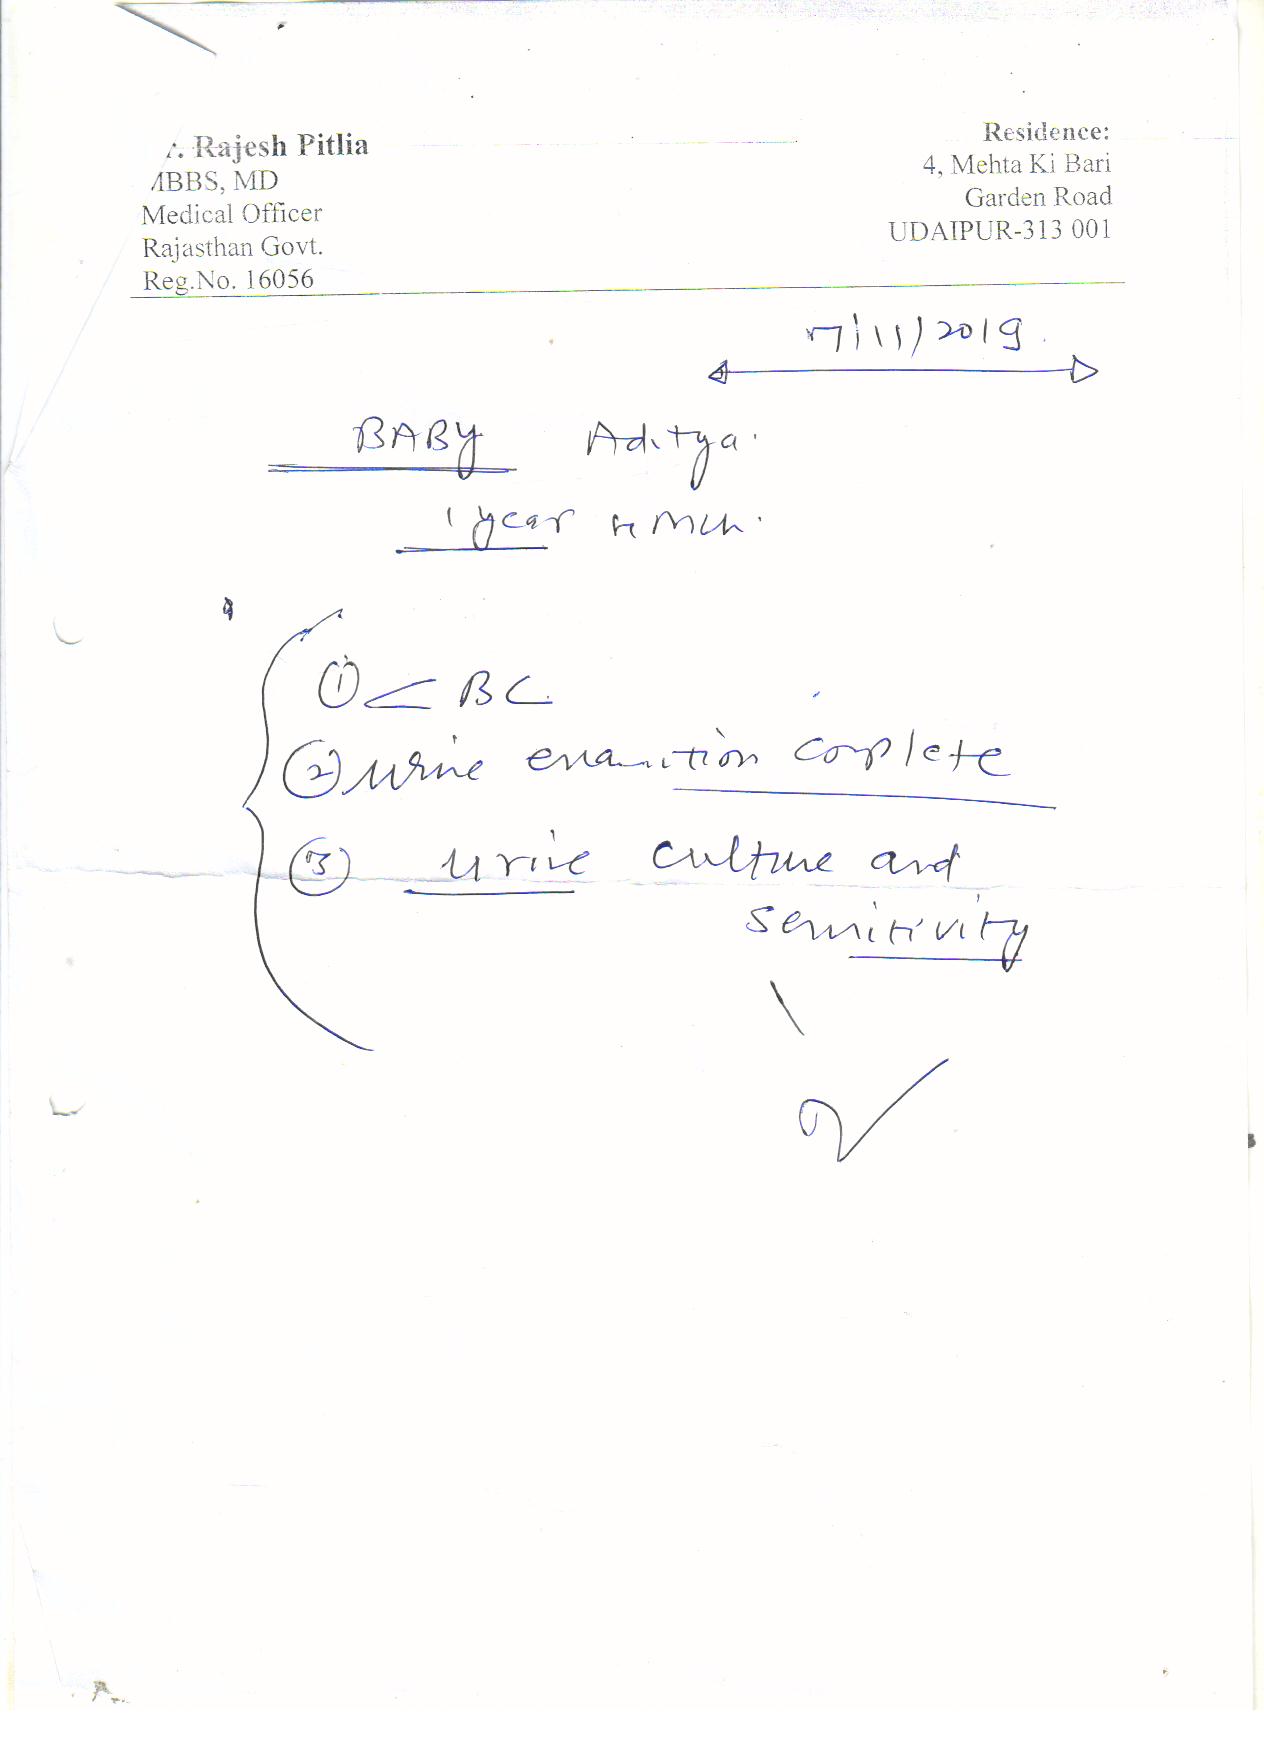 Rajesh Pitlia
MBBS, MD
Medical Officer
Rajasthan Govt.
Reg.No. 16056
Residence:
4, Mehta Ki Bari
Garden Road
UDAIPUR-313 001
17/11/2019
BABY Aditya
1 year
① CBC
② urine examition complete
③ urine culture and
sensitivity